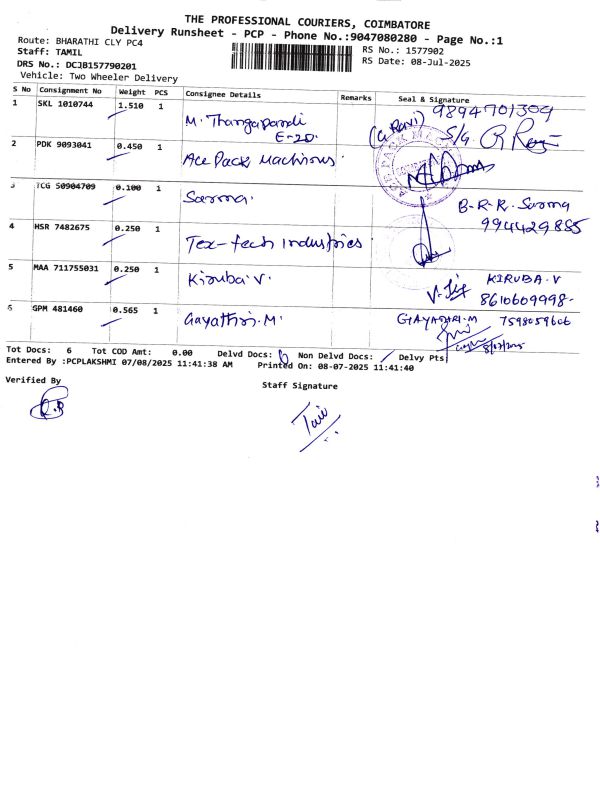 THE PROFESSIONAL COURIERS, COIMBATORE
Delivery Runsheet - PCP - Phone No.:9047080280 - Page No.:1
Route: BHARATHI CLY PC4
RS No.: 1577902
Staff: TAMIL
RS Date: 08-Jul-2025
DRS No.: DCJB157790201
Vehicle: Two Wheeler Delivery
S No Consignment No Weight PCS Consignee Details Remarks Seal & Signature
1 SKL 1010744 1.510 1 M. Thangapandi 9894701309
E-20. (G. Ravi) S/G
2 PDK 9093041 0.450 1 Ace Pack Machines.
3 TCG 50904709 0.100 1 Sarma. B.R.R. Sarma
994429885
4 HSR 7482675 0.250 1 Tex-tech industries
5 MAA 711755031 0.250 1 Kiruba V. KIRUBA.V
8610609998-
6 GPM 481460 0.565 1 Gayathri.M. GAYATHRI.M 7598059606
8/07/2025
Tot Docs: 6 Tot COD Amt: 0.00 Delvd Docs: 6 Non Delvd Docs: / Delvy Pts
Entered By :PCPLAKSHMI 07/08/2025 11:41:38 AM Printed On: 08-07-2025 11:41:40
Verified By
Staff Signature